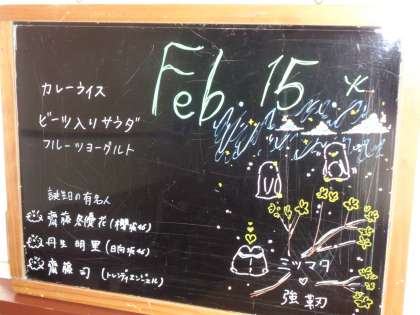 Feb. 15 火
カレーライス
ビーツ入りサラダ
フルーツヨーグルト
誕生日の有名人
齋藤冬優花(櫻坂46)
丹生明里(日向坂46)
齋藤司(トレンディエンジェル)
ミツマタ
強靭